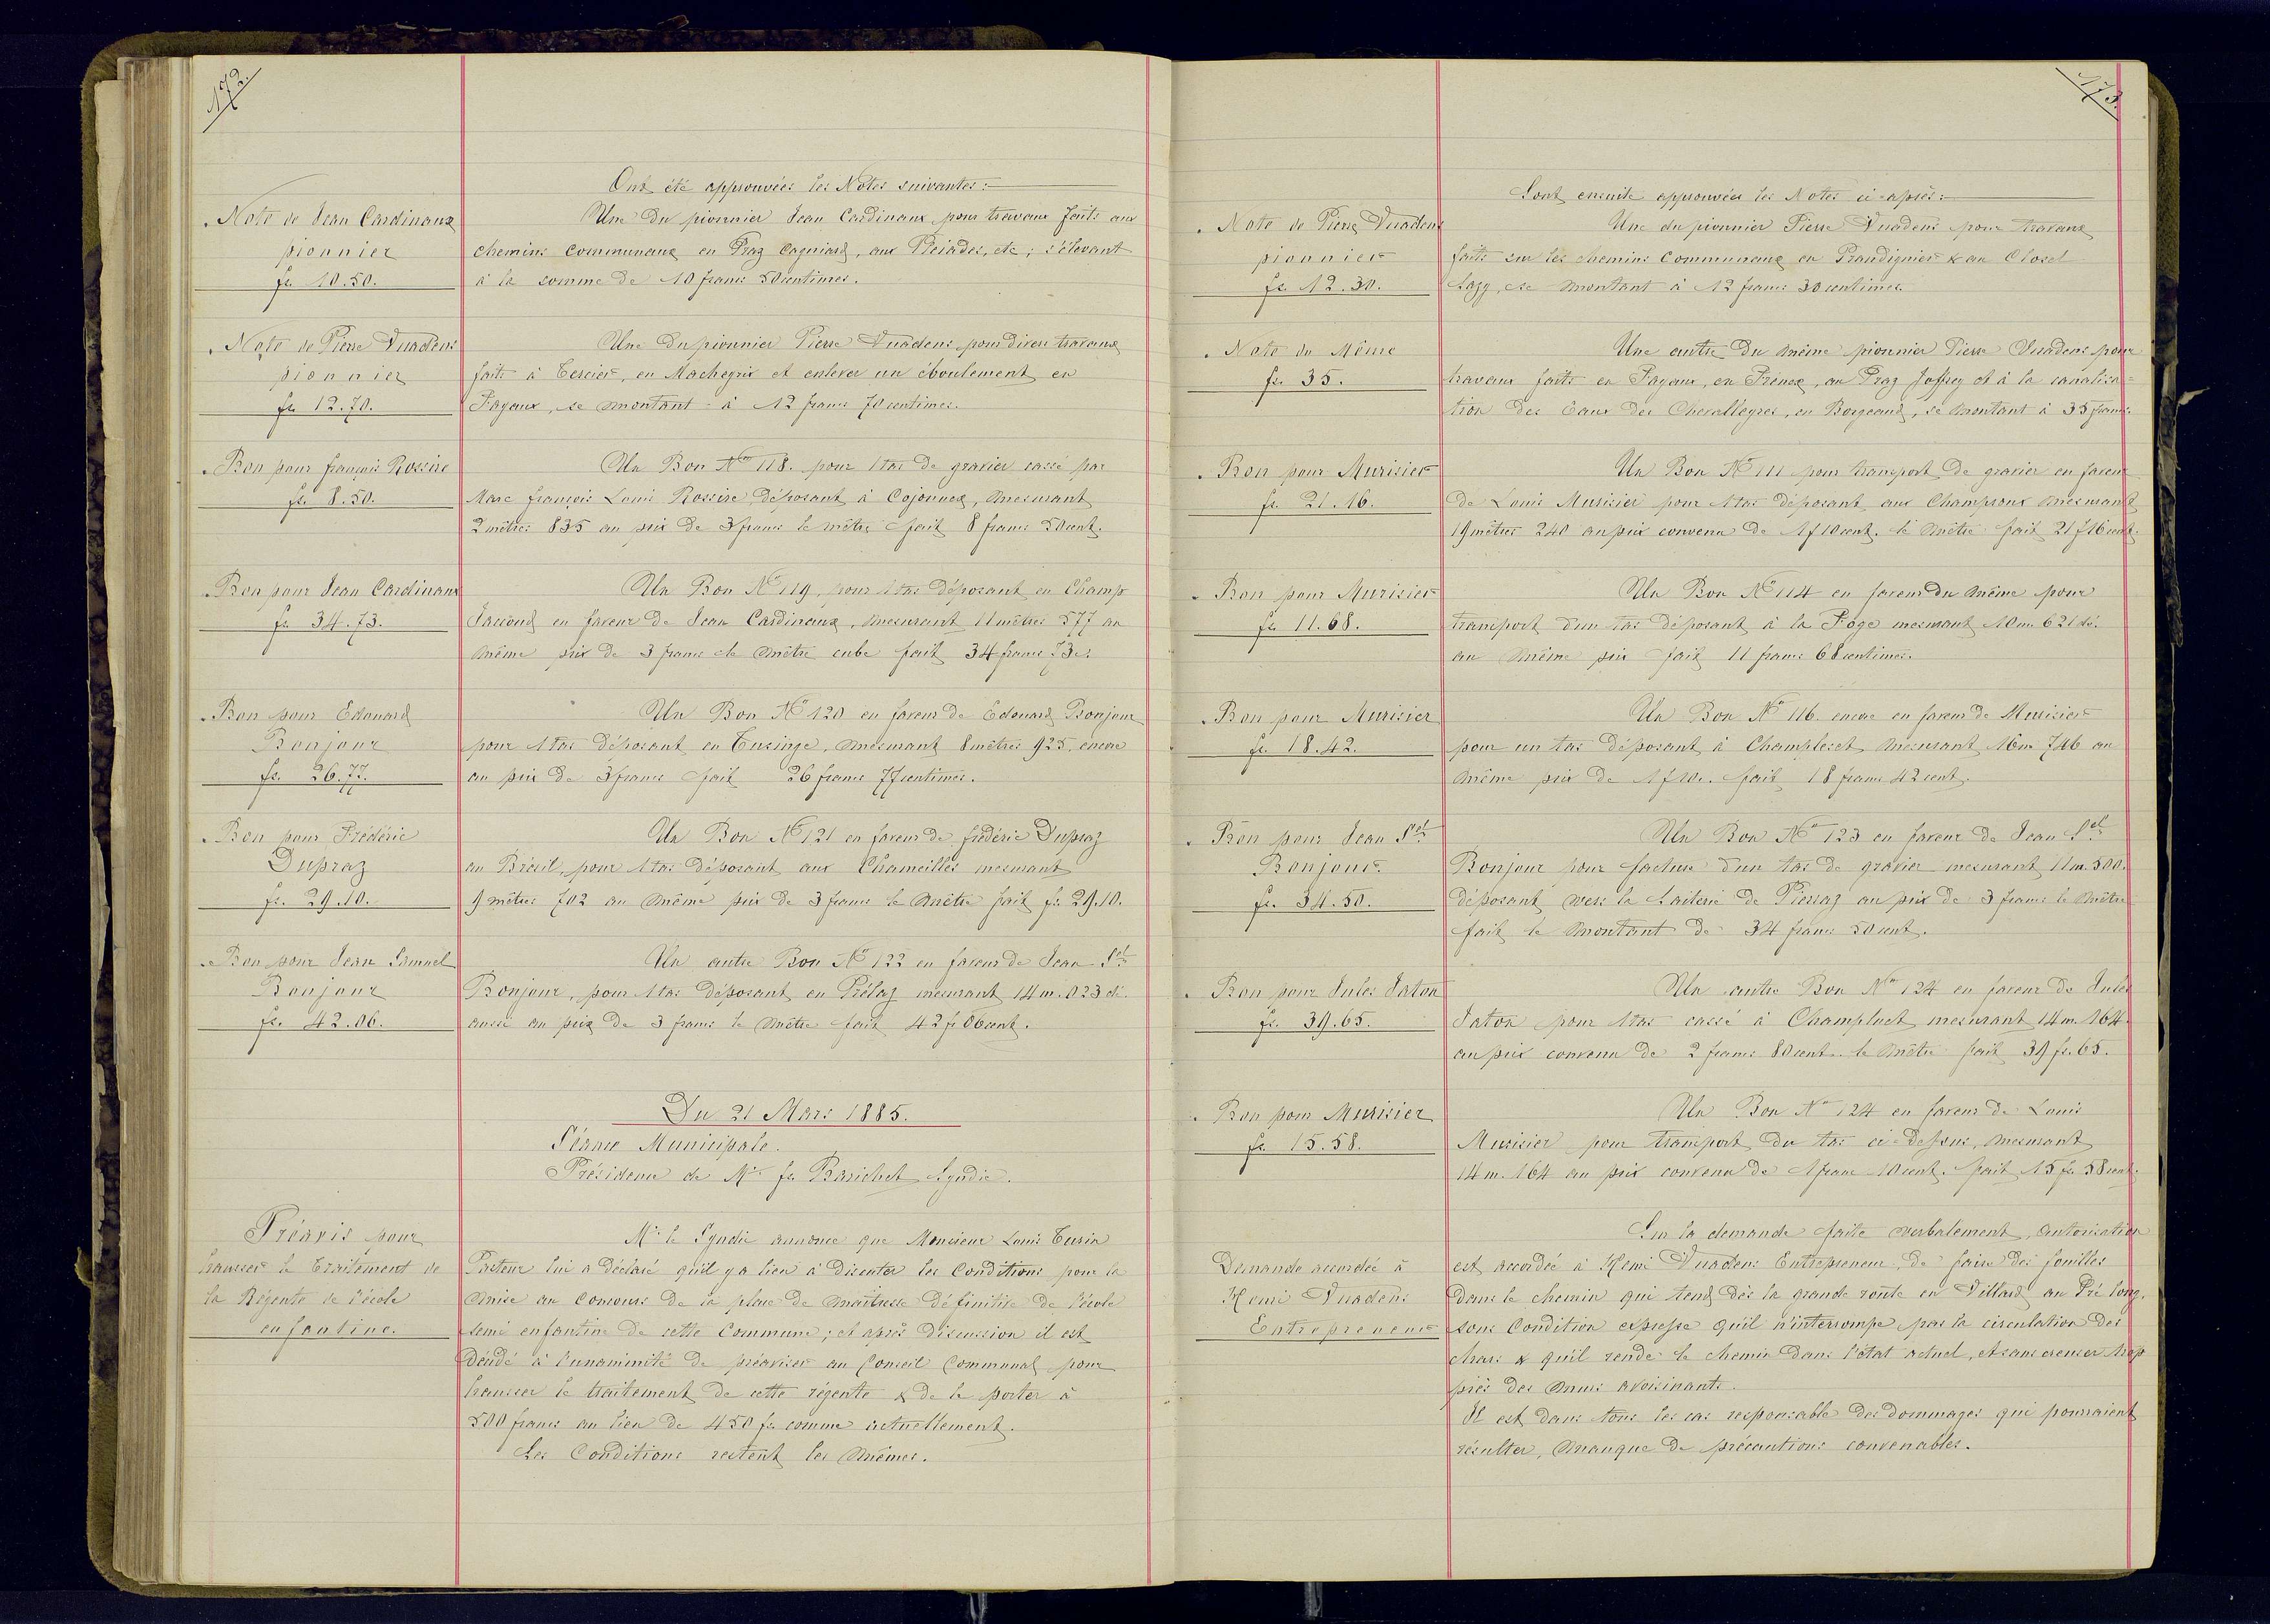 172.
Ont été approuvées les Notes suivantes:
Note de Jean Cardinaux
pionnier
fr. 10.50.
Une du pionnier Jean Cardinaux pour travaux faits aux
chemins communaux en Praz Cagniard, aux Pléiades, etc; s'élevant
à la somme de 10 francs 50 centimes.
Note de Pierre Vuadens
pionnier
fr. 12.70.
Une du pionnier Pierre Vuadens pour divers travaux
faits à Tercier, en Machegrix et enlever un éboulement en
Fayaux, se montant à 12 francs 70 centimes.
Bon pour françois Rossire
fr. 8.50.
Un Bon No 118. pour 1 tas de gravier cassé par
Marc françois Louis Rossire déposant à Cojonnex, mesurant
2 mètres 835 au prix de 3 francs le mètre fait 8 francs 50 cent.
Bon pour Jean Cardinaux
fr. 34.73.
Un Bon No 119, pour 1 tas déposant en Champ
en faveur de Jean Cardinaux, mesurant 11 mètres 577 au
même prix de 3 francs le mètre cube fait 34 francs 73 c.
Bon pour Edouard
Bonjour
fr. 26.77.
Un Bon No 120 en faveur de Edouard Bonjour
pour 1 tas déposant en Tusinge, mesurant 8 mètres 925. encore
au prix de 3 francs fait 26 francs 77 centimes.
Bon pour Frédéric
Dupraz
fr. 29.10.
Un Bon No 121 en faveur de frédéric Dupraz
au Brésil, pour 1 tas déposant aux Chameilles mesurant
9 mètres 702 au même prix de 3 francs le mètre fait fr. 29.10.
Bon pour Jean Samuel
Bonjour
fr. 42.06.
Un autre Bon No 122 en faveur de Jean Sel
Bonjour, pour 1 tas déposant en Prélaz mesurant 14 m. 023 di.
aussi au prix de 3 francs le mètre fait 42 fr 06 cent.
Du 21 Mars 1885.
Séance Municipale.
Présidence de Mr. fs Barichet Syndic.
Préavis pour
hausser le traitement de
la Régente de l'école
enfantine.
Mr. le Syndic annonce que Monsieur Louis Turin
Pasteur lui a déclaré qu'il y a lieu à discuter les Conditions pour la
mise au Concours de la place de maîtresse définitive de l'école
semi enfantine de cette Commune; et après discussion il est
décidé à l'unanimité de préaviser au Conseil Communal pour
hausser le traitement de cette régente & de le porter à
500 francs au lieu de 450 fr. comme actuellement.
Les Conditions restent les mêmes.
173.
Sont ensuite approuvées les Notes ci-après:
Note de Pierre Vuadens
pionnier
fr. 12.30.
Une du pionnier Pierre Vuadens pour travaux
faits sur les chemins communaux en Prandignier & au Closel
Lazy, se montant à 12 francs 30 centimes.
Note du Même
fr. 35.
Une autre du même pionnier Pierre Vuadens pour
travaux faits en Fayaux, en Prénex, au Praz Joffrey et à la canalisa=
tion des Eaux des Chevalleyres, en Borgeaud, se montant à 35 francs.
Bon pour Murisier
fr. 21.16.
Un Bon No 111 pour transport de gravier en faveur
de Louis Murisier pour 1 tas déposant aux Champsoux mesurant
19 mètres 240 au prix convenu de 1 f 10 cent. le mètre fait 21 f 16 cent.
Bon pour Murisier
fr. 11.68.
Un Bon No 114 en faveur du même pour
transport d'un tas déposant à la Foge mesurant 10 m. 621 di.
au même prix fait 11 francs 68 centimes.
Bon pour Murisier
fr. 18.42.
Un Bon No 116. encore en faveur de Murisier
pour un tas déposant à Champlevet mesurant 16 m 746 au
même prix de 1 f 10 c. fait 18 francs 42 cent.
Bon pour Jean Sel
Bonjour
fr. 34.50.
Un Bon No 123 en faveur de Jean Sel
Bonjour pour facture d'un tas de gravier mesurant 11 m. 500.
déposant vers la Laiterie de Pierraz au prix de 3 francs le mètre
fait le montant de 34 francs 50 cent.
Bon pour Jules Taton
fr. 39.65.
Un autre Bon No 124 en faveur de Jules
Taton pour 1 tas cassé à Champluet mesurant 14 m. 164.
au prix convenu de 2 francs 80 cent. le mètre fait 39 fr. 65.
Bon pour Murisier
fr. 15.58.
Un Bon No 124 en faveur de Louis
Murisier pour transport du tas ci-dessus, mesurant
14 m. 164 au prix convenu de 1 franc 10 cent. fait 15 fr. 58 cent.
Demande accordée à
Henri Vuadens
Entrepreneur
Sur la demande faite verbalement, autorisation
est accordée à Henri Vuadens Entrepreneur, de faire des fouilles
dans le chemin qui tend dès la grande route en Villard au Pré long,
sous Condition expresse qu'il n'interrompe pas la circulation des
chars & qu'il rende le chemin dans l'état actuel, et sans creuser trop
près des murs avoisinants.
Il est dans tous les cas responsable des dommages qui pourraient
résulter, manque de précautions convenables.